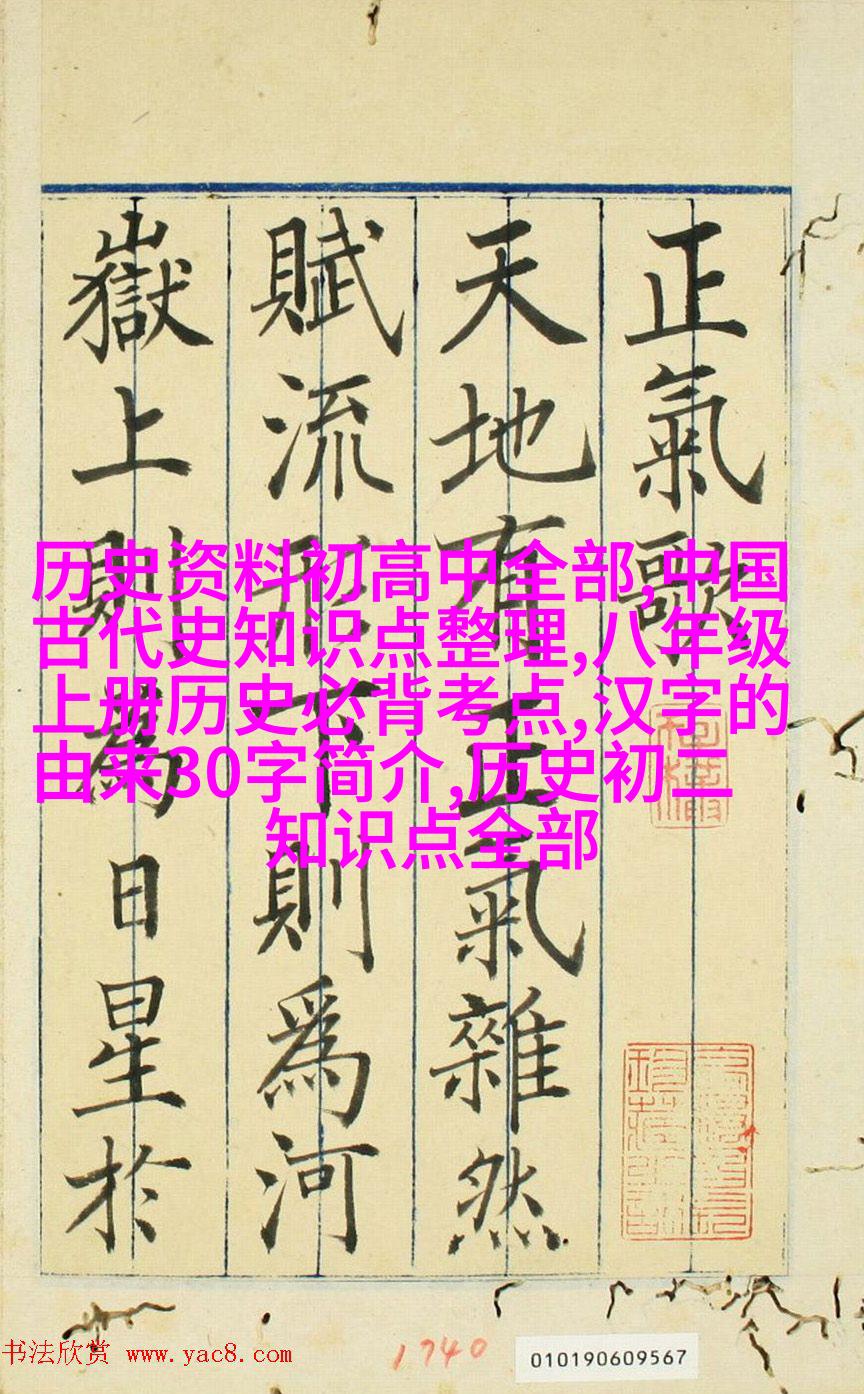 正氣歌
天地有正氣雜然
賦流形下則爲河
嶽上則爲日星於
历史资料初高中全部,中国
古代史知识点整理,八年级
上册历史必背考点,汉字的
由来30字简介,历史初二
知识点全部
书法欣赏 www.yac8.com
1740
010190609567